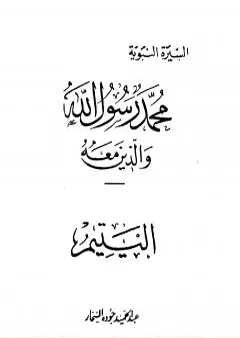 السيرة النبوية
محمد رسول الله
والذين معه
اليتيم
عبد الحميد جوده السحار